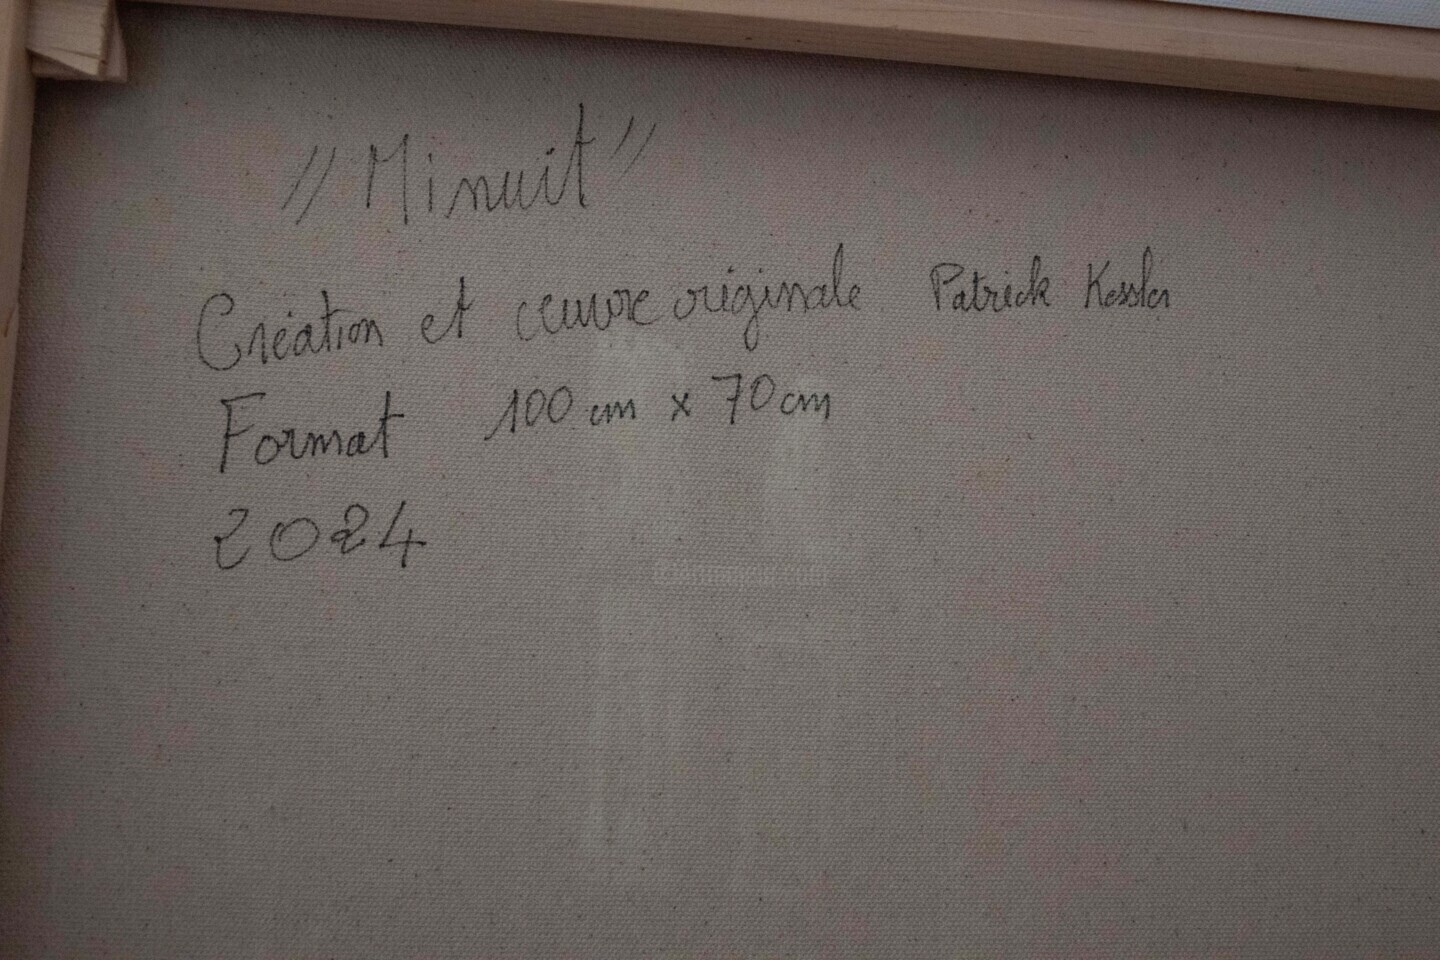 "Minuit"
Création et oeuvre originale Patrick Kessler
Format 100 cm x 70 cm
2024